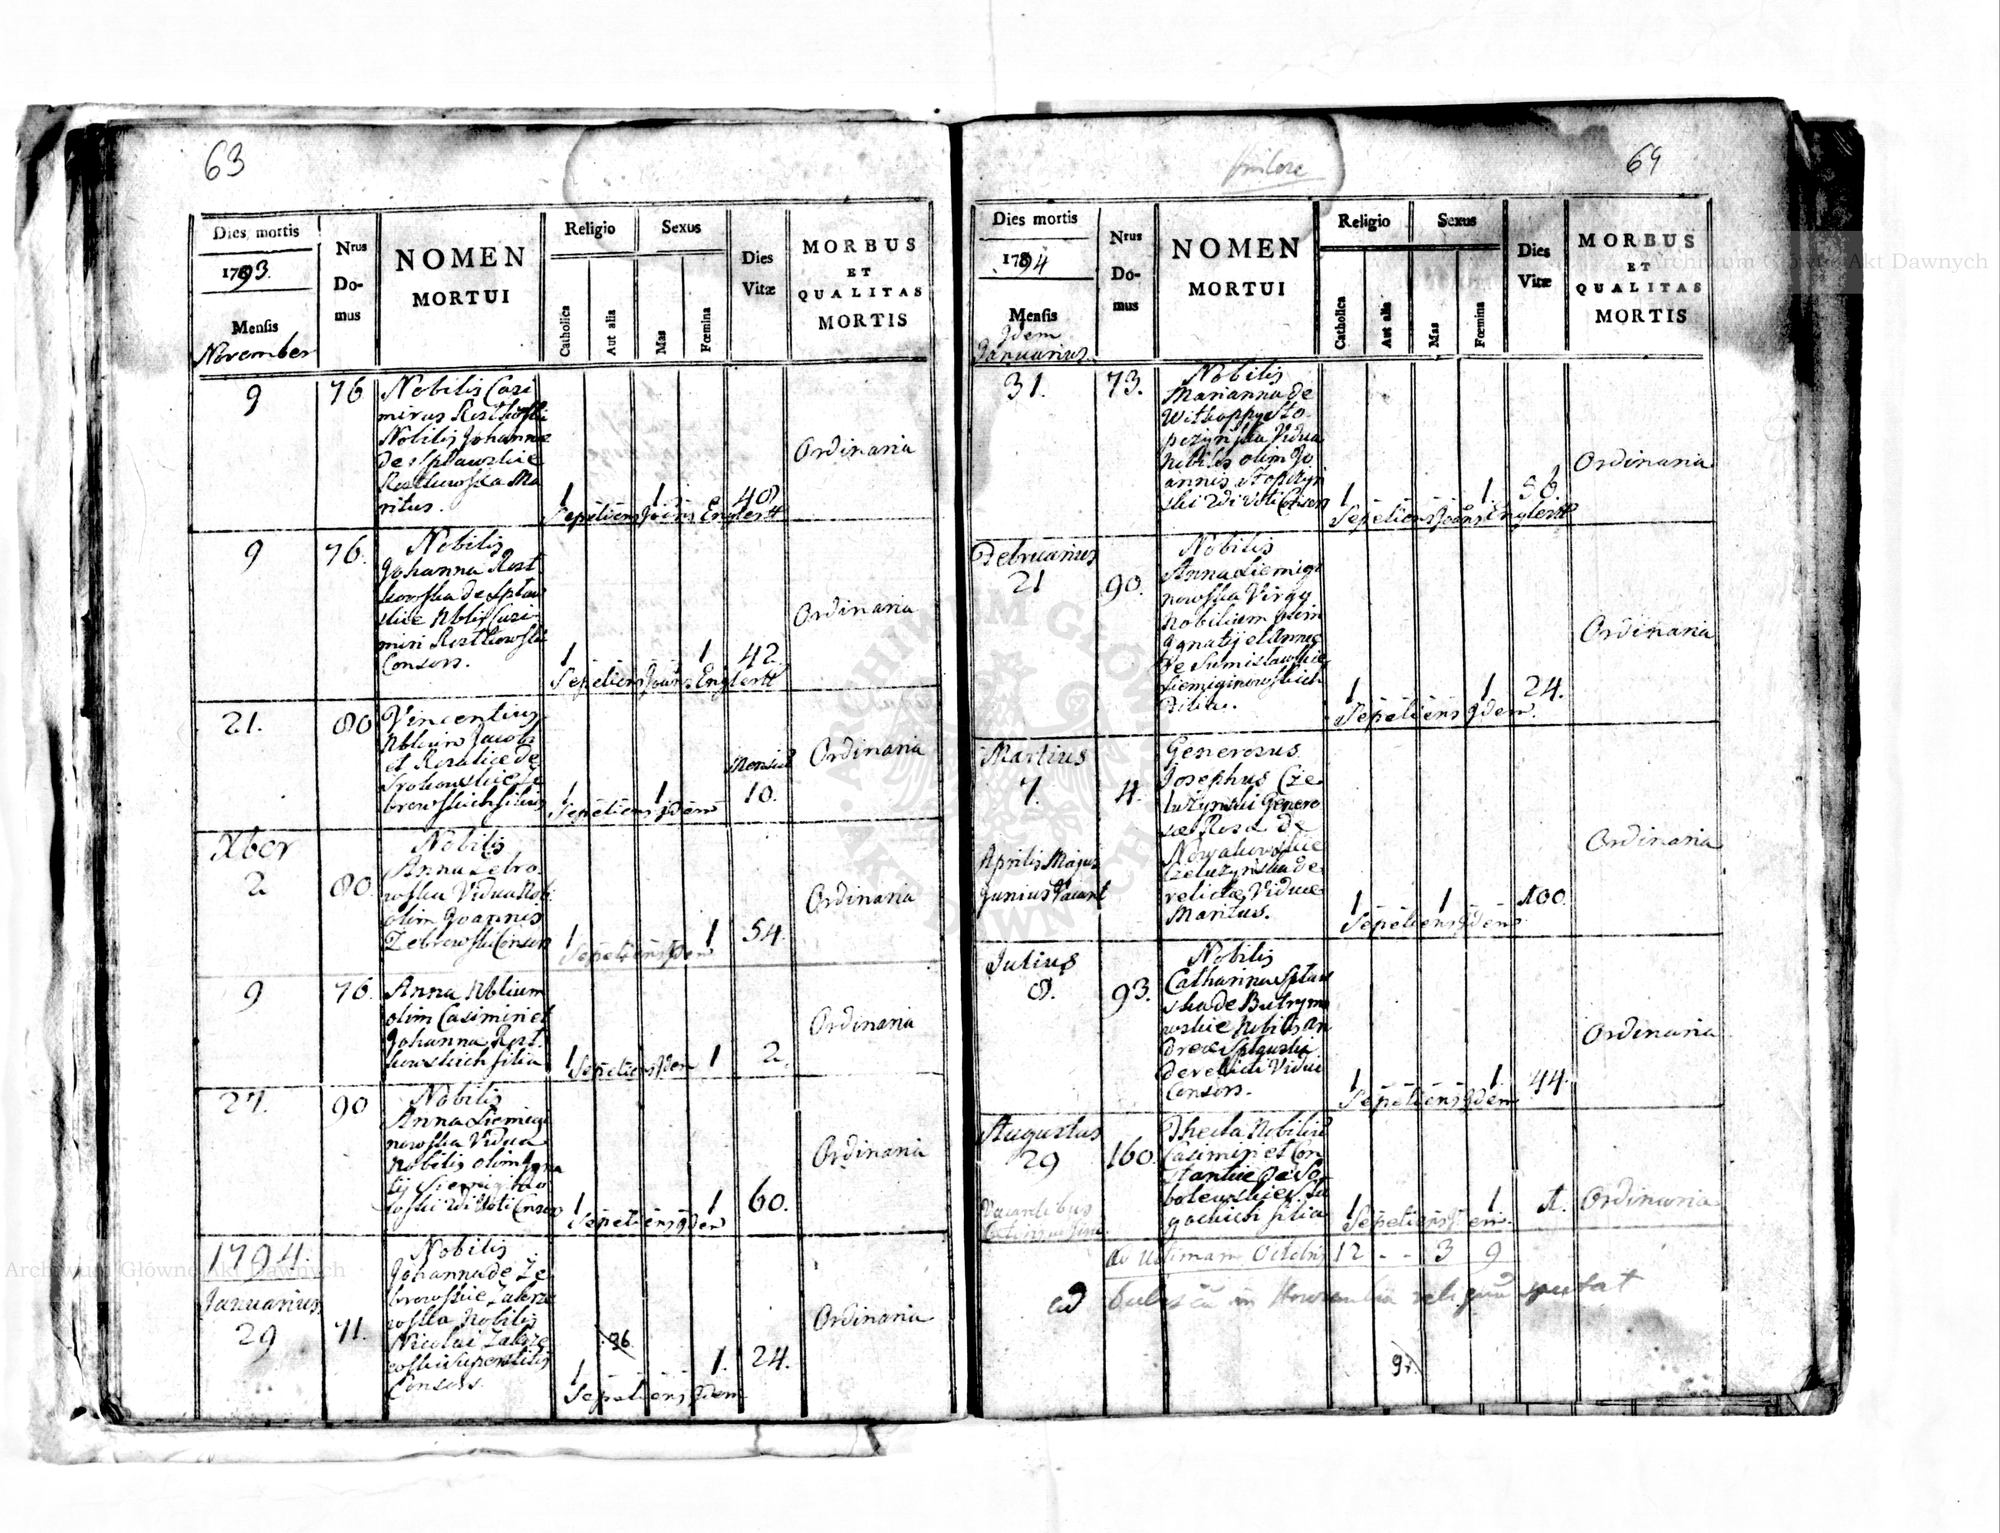 63
Dies mortis
1793.
Mensis
November
Nrus
Do-
mus
NOMEN
MORTUI
Religio
Catholica
Aut alia
Sexus
Mas
Fœmina
Dies
Vitæ
MORBUS
ET
QUALITAS
MORTIS
9
76
Nobilis Casi
mirus Rostkoski
Nobilis Johannæ
de Spławskie
Rostkowska Ma
ritus.
1
1
40
Sepeliens Joãns Englertt
Ordinaria
9
76.
Nobilis
Johanna Rost
kowska de Spław
skie Nblis Casi
miri Rostkowski
Consors.
1
1
42.
Sepeliens Joãns Englertt
Ordinaria
21.
80
Vincentius
Nblium Jacobi
et Rosaliæ de
browskich filius
1
1
Mensiũ
10.
Sepeliens Idem
Ordinaria
Xber
2
80.
Nobilis
Anna Zebro
wska Vidua Nob:
olim Joannis
Zebrowski Consors
1
1
54.
Sepeliens Idem
Ordinaria
9
76.
Anna Nblium
olim Casimiri et
Johanna Rost
kowskich filia
1
1
2.
Sepeliens Idem
Ordinaria
27.
90
Nobilis
Anna Siemigi
nowska Vidua
Nobilis olim Igna
tij Siemigino
wski Consors
1
1
60.
Sepeliens Idem
Ordinaria
1794.
Januarius
29
71.
Nobilis
Johanna de Ze
browskie Zakrze
wska Nobilis
Nicolai Zakrze
wski Superstitis
Consors.
96
1
1.
24.
Sepeliens Idem
Ordinaria
64
Dies mortis
1794
Mensis
Idem
Januarius.
Nrus
Do-
mus
NOMEN
MORTUI
Religio
Catholica
Aut alia
Sexus
Mas
Fœmina
Dies
Vitæ
MORBUS
ET
QUALITAS
MORTIS
31.
73.
Nobilis
Marianna de
Vidua
Nobilis olim Jo
annis
Consors
1
1.
56.
Sepeliens Joãns Englertt
Ordinaria
Februarius
21
90.
Nobilis
Anna Siemigi
nowska Virgo
Nobilium olim
Ignatij et Annæ
de Sumisławskie
Siemiginowskich
Filia.
1
1
24.
Sepeliens Idem
Ordinaria
Martius
7.
4.
Generosus
Josephus Cze
luzynski Genero
sæ Rosæ de
Nowakowskie
Czeluzynska de
relictæ Viduæ
Maritus.
1
1
100.
Sepeliens Idem
Ordinaria
Aprilis Majus
Junius Vacant
Julius
8.
93.
Nobilis
Catharina Spław
ska de Butrymo
wskie Nobilis An
dreæ Spławski
derelicti Vidui
Consors.
1
1
44.
Sepeliens Idem
Ordinaria
Augustus
29
160.
Thecla Nobiliũ
Casimiri et Con
stantiæ de So
bolewskie
filia
1
1
Sepeliens Idem
Ordinaria
Vacantibus
ad Ultimam Octobris 12 - - 3 9
ad
97.
Archiwum Główne Akt Dawnych
Archiwum Główne Akt Dawnych
ARCHIWUM GŁÓWNE
AKT DAWNYCH